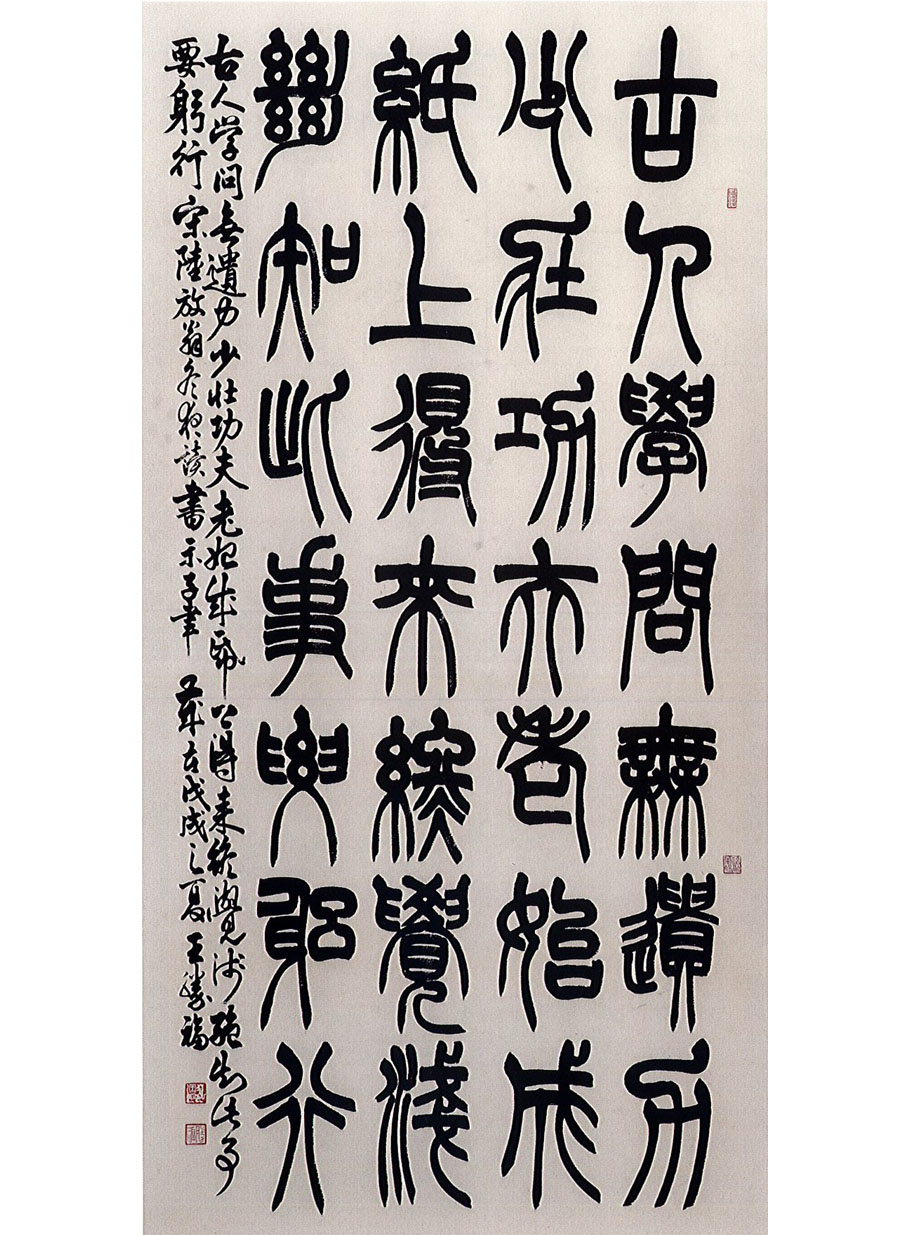 古人學問無遺力
少壯功夫老始成
紙上得來終覺淺
絕知此事要躬行
古人学问無遺力少壮功夫老始成紙上得来終覺浅絕知此事
要躬行 宋陸放翁冬夜读書示子聿 歲在戊戌之夏 王勝福